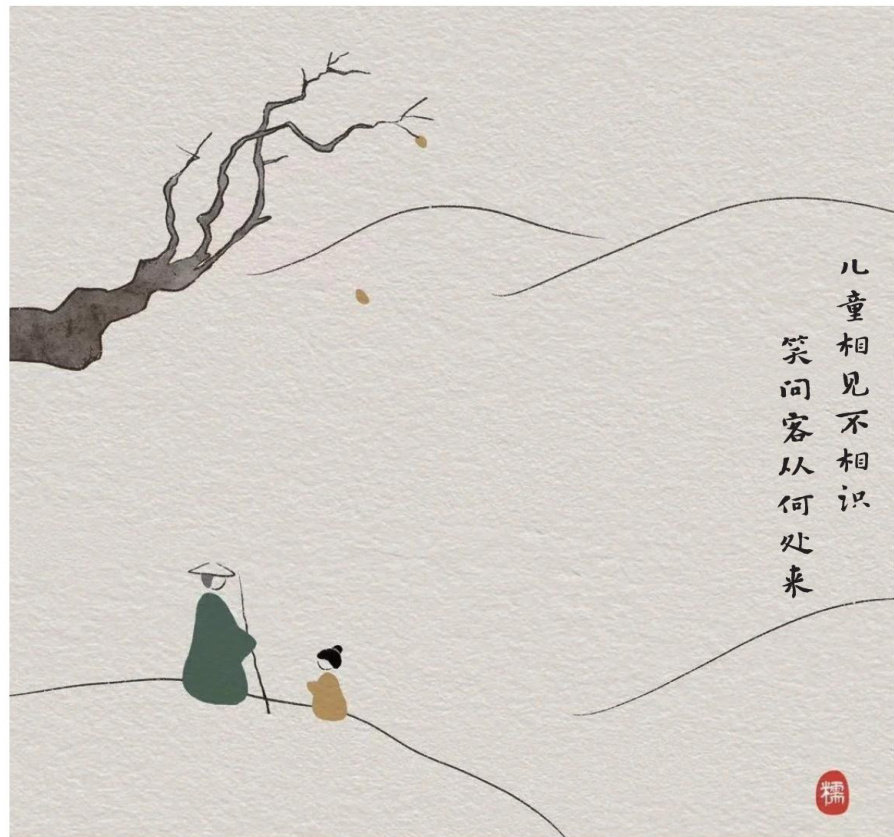 儿童相见不相识
笑问客从何处来
糯